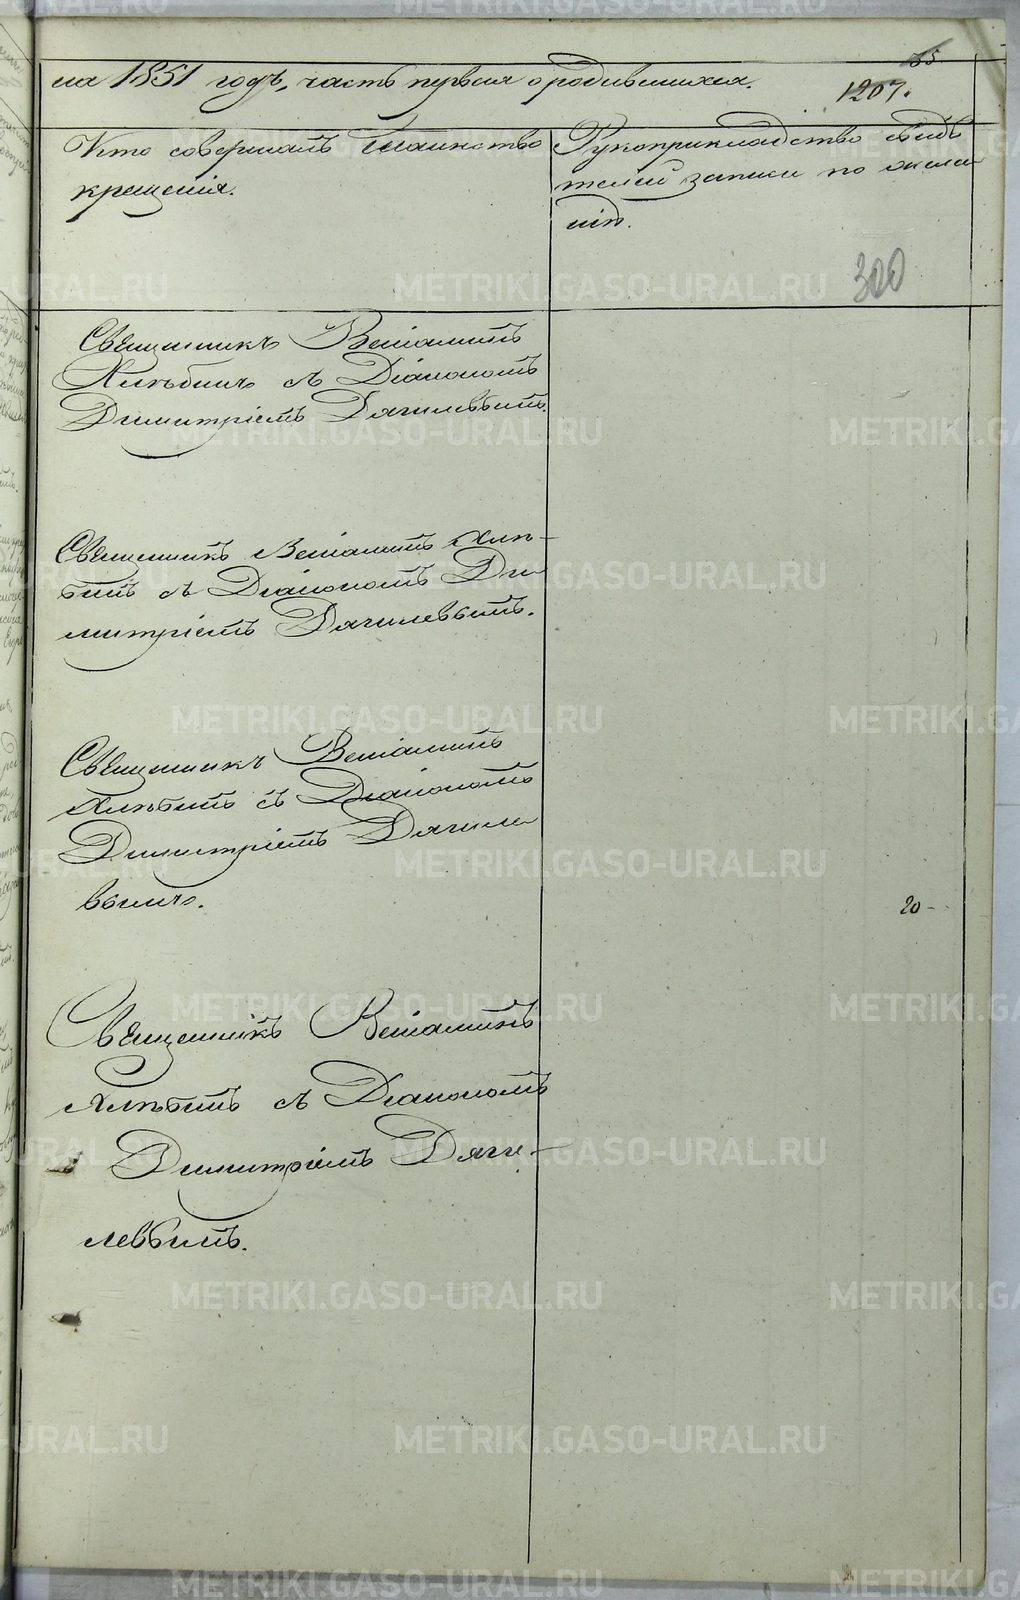 на 1851 годъ, часть первая о родившихся.
1207.
Кто совершалъ таинство
крещенія.
Рукоприкладство свидѣ
телей записи по жела
нію.
300
Священникъ Веніаминъ
Хлѣбинъ съ Діакономъ
Димитріемъ Дягилевымъ.
Священникъ Веніаминъ Хлѣ-
бинъ съ Діакономъ Ди
митріемъ Дягилевымъ.
Священникъ Веніаминъ
Хлѣбинъ съ Діакономъ
Димитріемъ Дягиле
вымъ.
20-
Священникъ Веніаминъ
Хлѣбинъ съ Діакономъ
Димитріемъ Дяги-
левымъ.
METRIKI.GASO-URAL.RU